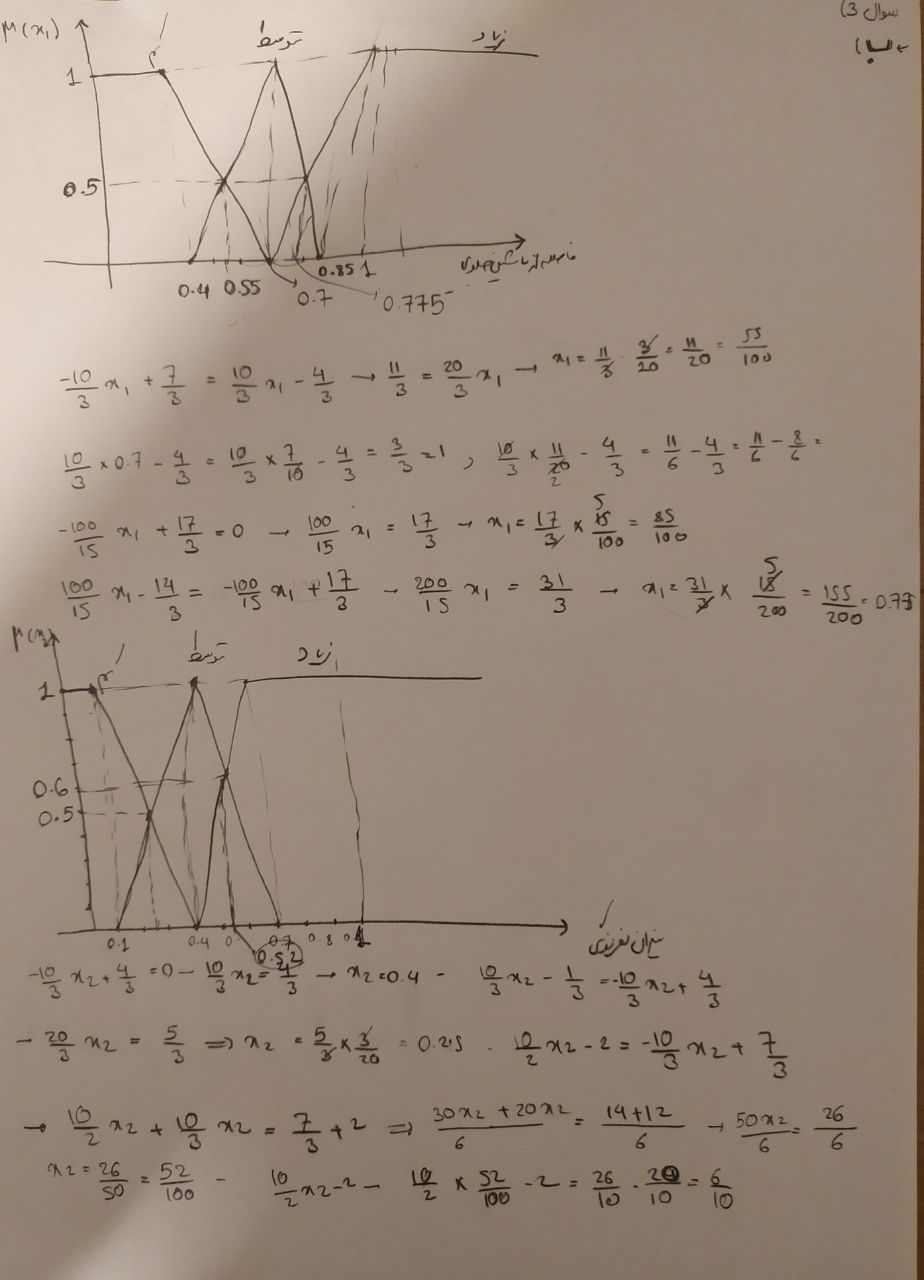 سوال 3)
ب)
μ(x₁)
کم متوسط زیاد
1
0.5
0.4 0.55 0.7 0.775 0.85 1
فاصله از ماشین جلویی
-10/3 x₁ + 7/3 = 10/3 x₁ - 4/3 → 11/3 = 20/3 x₁ → x₁ = 11/3 · 3/20 = 11/20 = 55/100
10/3 × 0.7 - 4/3 = 10/3 × 7/10 - 4/3 = 3/3 = 1 , 10/3 × 11/20 - 4/3 = 11/6 - 4/3 = 11/6 - 8/6 =
-100/15 x₁ + 17/3 = 0 → 100/15 x₁ = 17/3 → x₁ = 17/3 × 15/100 = 85/100
100/15 x₁ - 14/3 = -100/15 x₁ + 17/3 → 200/15 x₁ = 31/3 → x₁ = 31/3 × 15/200 = 155/200 = 0.775
μ(x₂)
کم متوسط زیاد
1
0.6
0.5
0.1 0.4 0.52 0.7 0.8 1
-10/3 x₂ + 4/3 = 0 → 10/3 x₂ = 4/3 → x₂ = 0.4 - 10/3 x₂ - 1/3 = -10/3 x₂ + 4/3
→ 20/3 x₂ = 5/3 ⇒ x₂ = 5/3 × 3/20 = 0.25 . 10/2 x₂ - 2 = -10/3 x₂ + 7/3
→ 10/2 x₂ + 10/3 x₂ = 7/3 + 2 ⇒ 30x₂ + 20x₂/6 = 14+12/6 → 50x₂/6 = 26/6
x₂ = 26/50 = 52/100 - 10/2 x₂ - 2 - 10/2 × 52/100 - 2 = 26/10 - 20/10 = 6/10